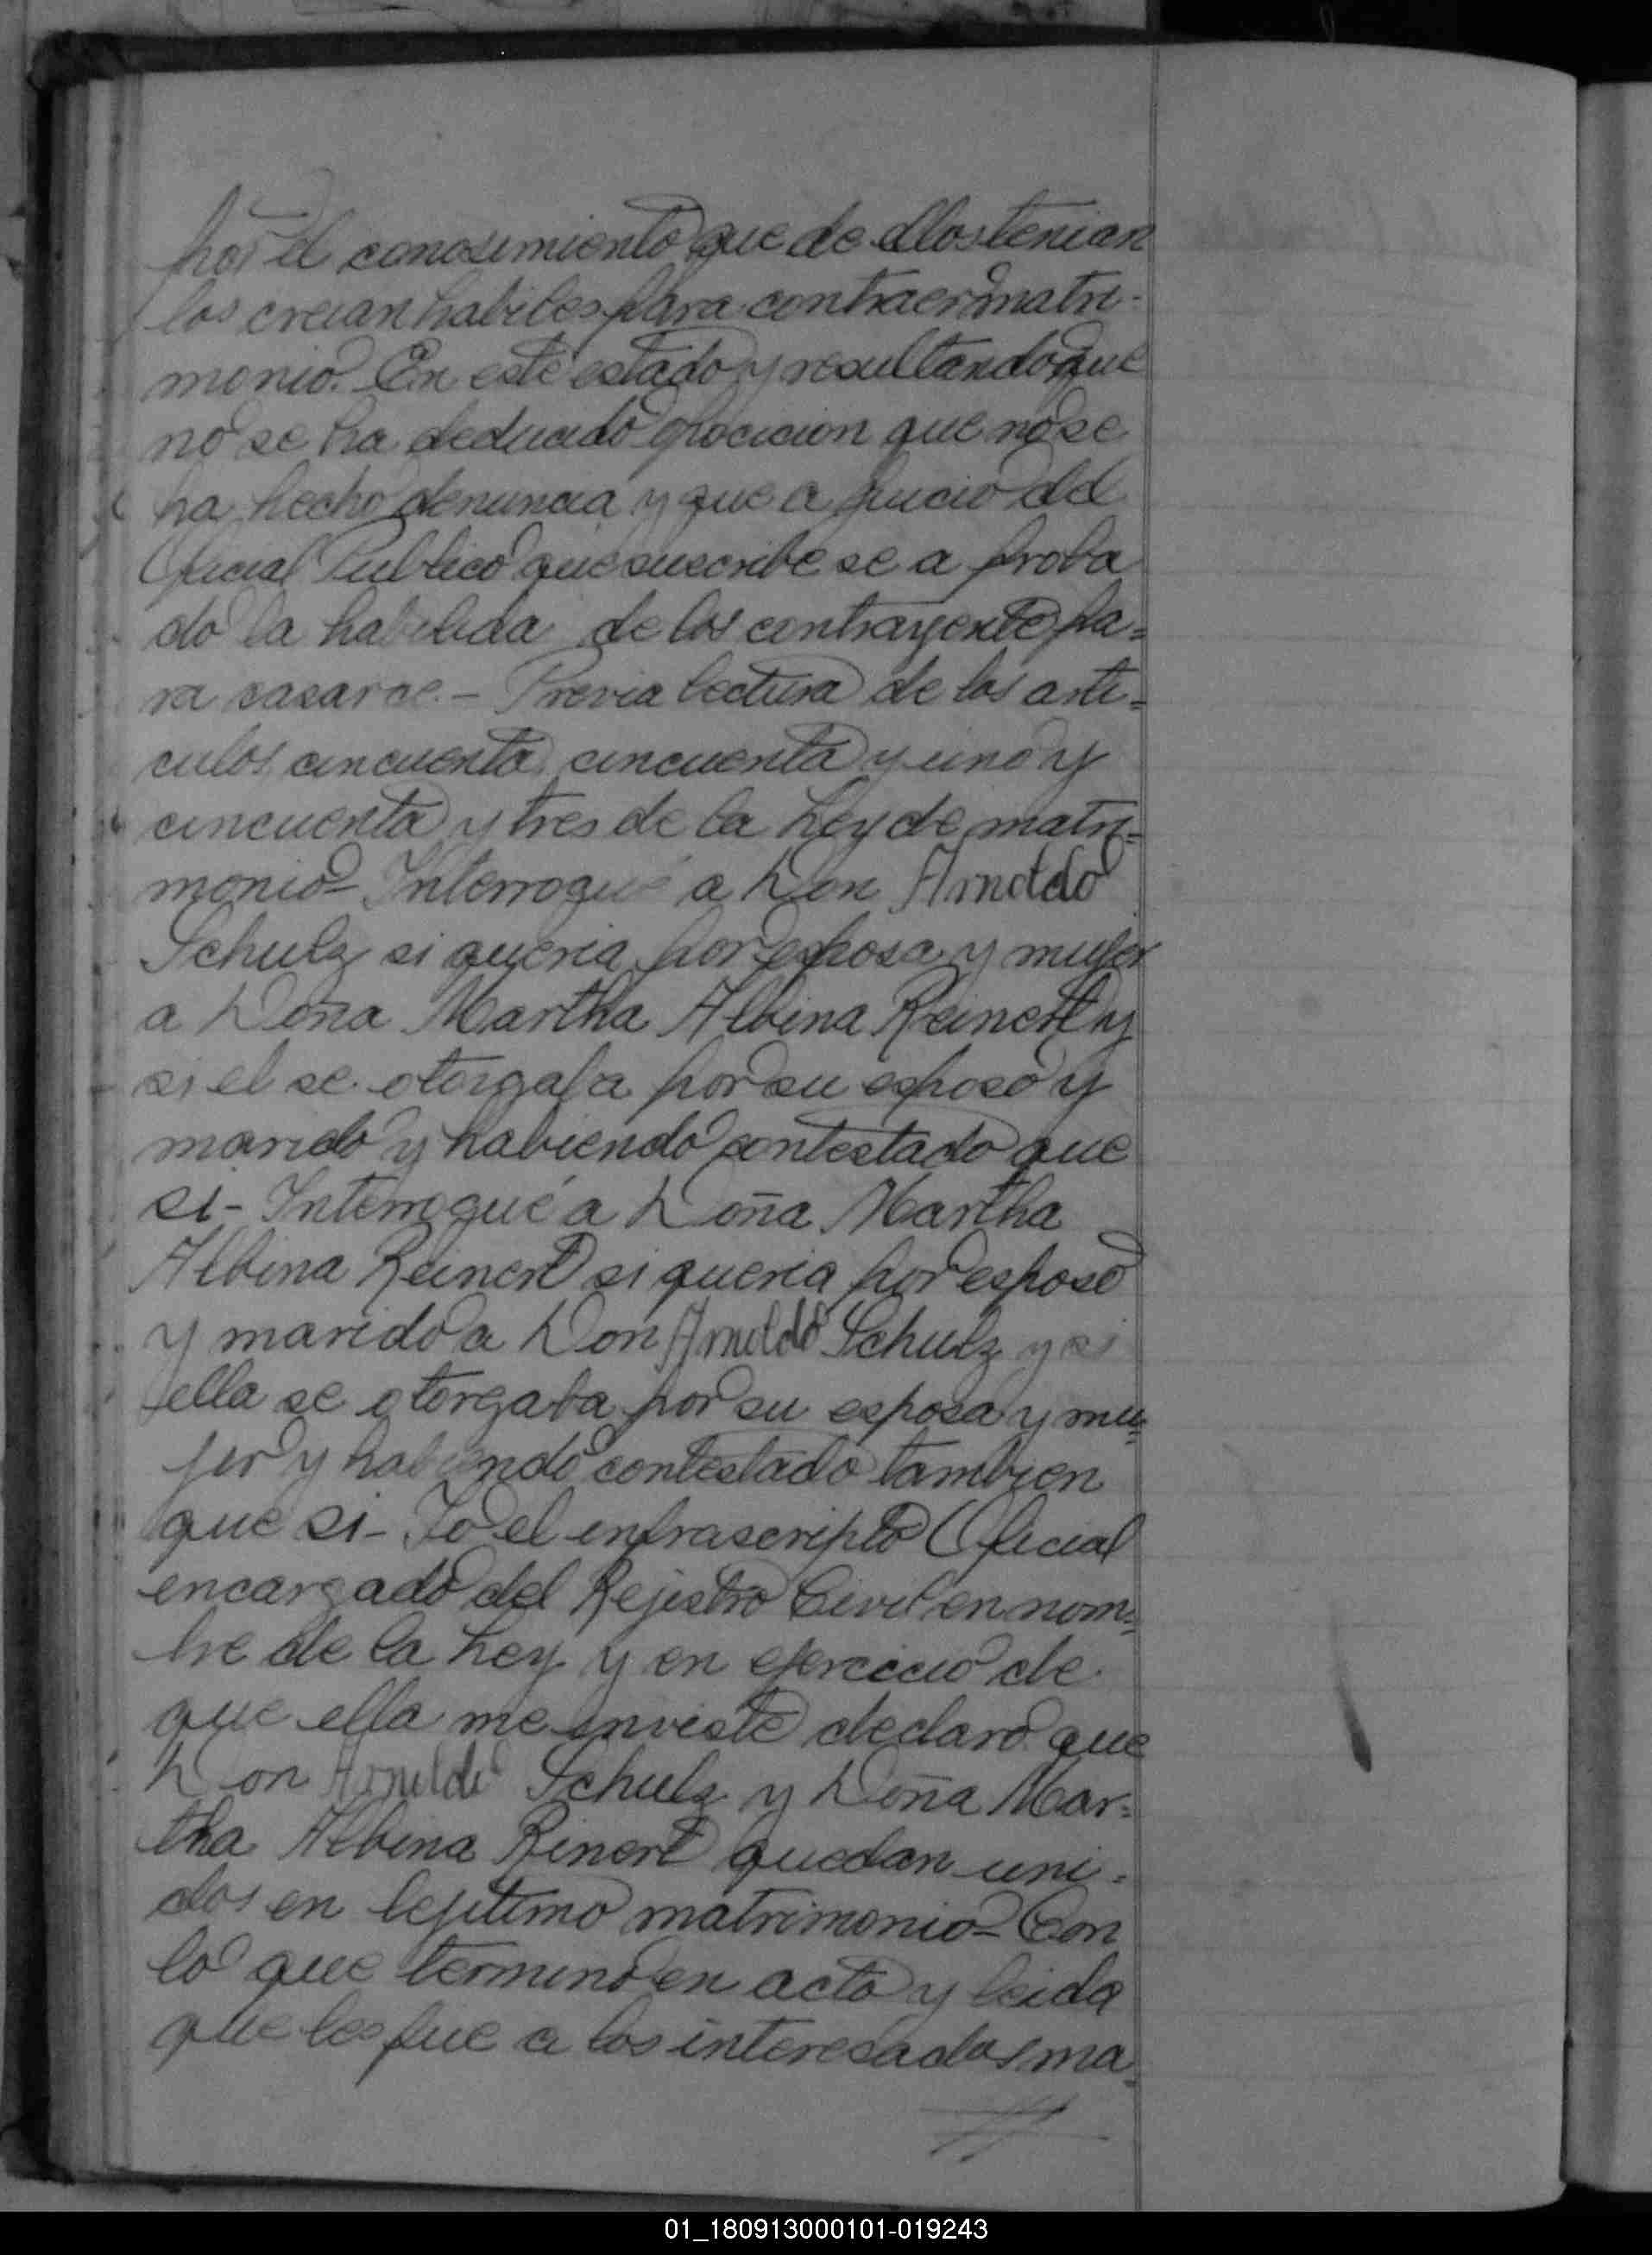 por el conosimiento que de ellos tenian
los creian habiles para contraer matri-
monio. En este estado y resultando que
no se ha deducido opocicion que no se
ha hecho denuncia y que a juicio del
Oficial Publico que suscribe se a proba
do la habilida de los contrayente pa=
ra casarce.- Previa lectura de los arti=
culos cincuenta, cincuenta y uno y
cincuenta y tres de la Ley de matri=
monio- Interrogué a Don Arnoldo
Schulz si queria por esposa y mujer
a Doña Martha Albina Reinert y
si el se otorgaba por su esposo y
marido y habiendo contestado que
si- Interrogué a Doña Martha
Albina Reinert si queria por esposo
y marido a Don Arnoldo Schulz y si
ella se otorgaba por su esposa y mu=
jer y habiendo contestado tambien
que si- Io el infrascripto Oficial
encargado del Rejistro Civil en nom=
bre de la Ley y en ejercicio de
que ella me enviste declaro que
Don Arnoldo Schulz y Doña Mar=
tha Albina Rinert quedan uni=
dos en lejitimo matrimonio- Con
lo que termino en acto y leida
que les fue a los interesados ma=
01_180913000101-019243